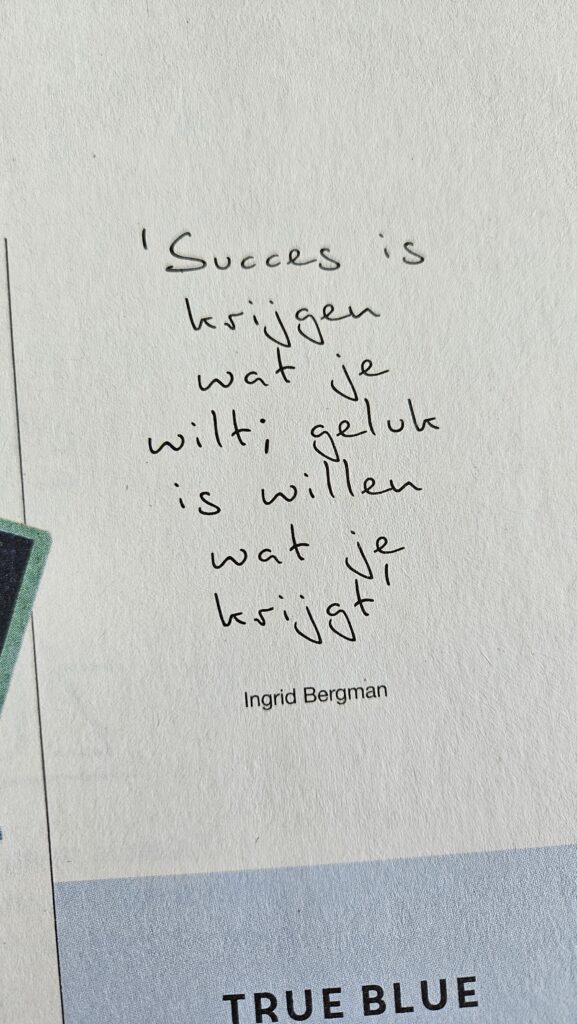 'Succes is
krijgen
wat je
wilt; geluk
is willen
wat je
krijgt'
Ingrid Bergman
TRUE BLUE